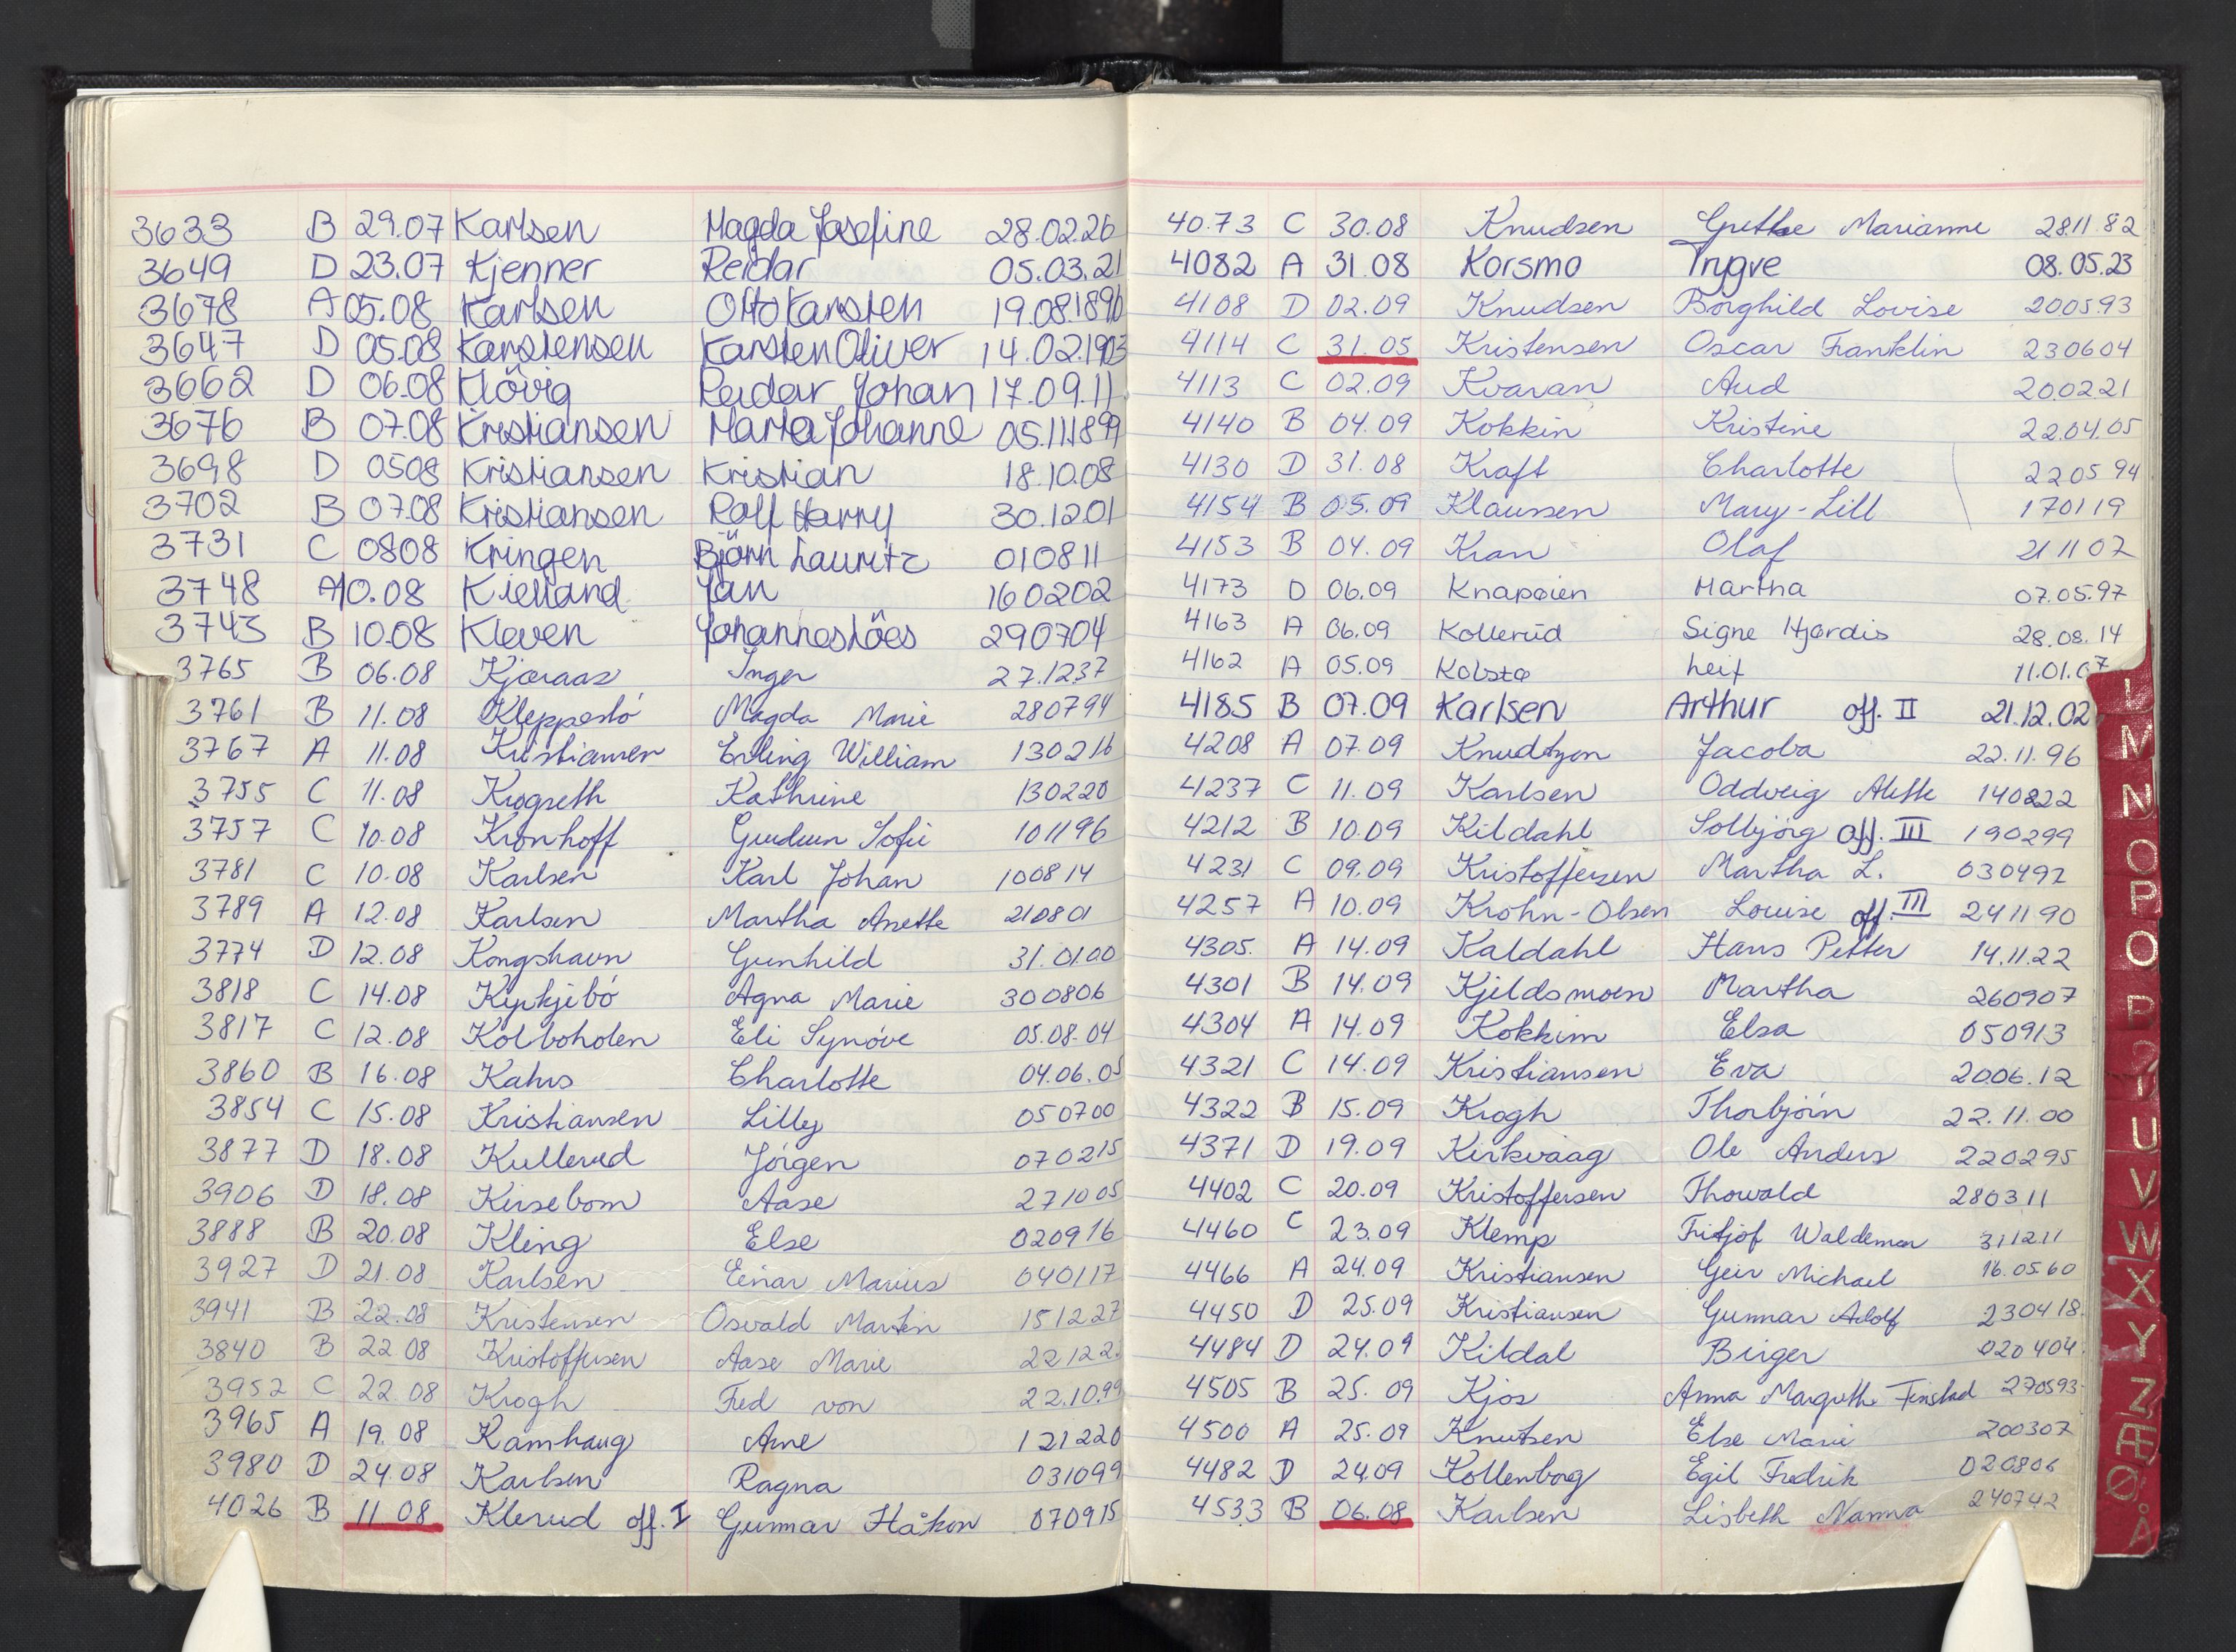 3633 B 29.07 Karlsen Magda Josefine 28.02.26
3649 D 23.07 Kjenner Reidar 05.03.21
3678 A 05.08 Karlsen Otto Karsten 19.08.1896
3647 D 05.08 Karstensen Karsten Oliver 14.02.1903
3662 D 06.08 Klövig Reidar Johan 17.09.11
3676 B 07.08 Kristiansen Marta Johanne 05.11.1899
3698 D 0508 Kristiansen Kristian 18.10.08
3702 B 07.08 Kristiansen Rolf Harry 30.12.01
3731 C 0808 Kringen Björn Lauritz 010811
3748 A 10.08 Kielland Jan 160202
3743 B 10.08 Kleven Johannes 290704
3765 B 06.08 Kjæraas Inger 27.12.37
3761 B 11.08 Kleppestö Magda Marie 280794
3767 A 11.08 Kristiansen Erling William 130216
3755 C 11.08 Krogseth Kathrine 130220
3757 C 10.08 Kronhoff Gudrun Sofie 101196
3781 C 10.08 Karlsen Karl Johan 100814
3789 A 12.08 Karlsen Martha Anette 210801
3774 D 12.08 Kongshavn Gunhild 31.01.00
3818 C 14.08 Kyrkjebö Agna Marie 300806
3817 C 12.08 Kolboholen Eli Synöve 05.08.04
3860 B 16.08 Kahrs Charlotte 04.06.05
3854 C 15.08 Kristiansen Lilly 050700
3877 D 18.08 Kullerud Jörgen 070215
3906 D 18.08 Kirsebom Aase 271005
3888 B 20.08 Kling Else 020916
3927 D 21.08 Karlsen Einar Marius 040117
3941 B 22.08 Kristensen Osvald Martin 151227
3840 B 22 08 Kristoffersen Aase Marie 22122
3952 C 22.08 Krogh Fred von 22.10.99
3965 A 19.08 Kamhaug Arne 121220
3980 D 24.08 Karlsen Ragna 031099
4026 B 11 08 Klerud off. I Gunnar Håkon 070915
40.73 C 30.08 Knudsen Grethe Marianne 2811.82
4082 A 31.08 Korsmo Trygve 08.05.23
4108 D 02.09 Knudsen Borghild Lovise 200593
4114 C 31.05 Kristensen Oscar Franklin 230604
4113 C 02.09 Kvaran Aud 200221
4140 B 04.09 Kokkin Kristine 22.04.05
4130 D 31.08 Kraft Charlotte 2205 94
4154 B 05.09 Klaussen Mary-Lill 170119
4153 B 04.09 Kran Olaf 211107
4173 D 06.09 Knapøien Martha 07.05.97
4163 A 06.09 Kollerud Signe Hjørdis 28.08.14
4162 A 05.09 Kolstø Leif 11.01.07
4185 B 07.09 Karlsen Arthur off. II 21.12.02
4208 A 07.09 Knudtzon Jacoba 22.11.96
4237 C 11.09 Karlsen Oddveig Alette 140822
4212 B 10.09 Kildahl Solbjörg off. III 190299
4231 C 09.09 Kristoffersen Martha L. 030492
4257 A 10.09 Krohn-Olsen Louise off. III 241190
4305. A 14.09 Kaldahl Hans Petter 14.11.22
4301 B 14.09 Kjeldsmoen Martha 260907
4304 A 14.09 Kokkim Elsa 050913
4321 C 14.09 Kristiansen Eva 2006.12
4322 B 15.09 Krogh Thorbjörn 22.11.00
4371 D 19.09 Kirkvaag Ole Anders 220295
4402 C 20.09 Kristoffersen Thorvald 280311
4460 C 23.09 Klemp Fritjof Waldemar 311211
4466 A 24.09 Kristiansen Geir Michael 16.05.60
4450 D 25.09 Kristiansen Gunnar Adolf 230418
4484 D 24.09 Kildal Birger 020404
4505 B 25.09 Kjos Anna Margrethe Finstad 270593
4500 A 25.09 Knutsen Else Marie 200307
4482 D 24.09 Kollenborg Egil Fredrik 020806
4533 B 06.08 Karlsen Lisbeth Nanna 240742
M
N
O
P
Q
R
U
V
W
X
Y
Z
Æ
Ø
Å